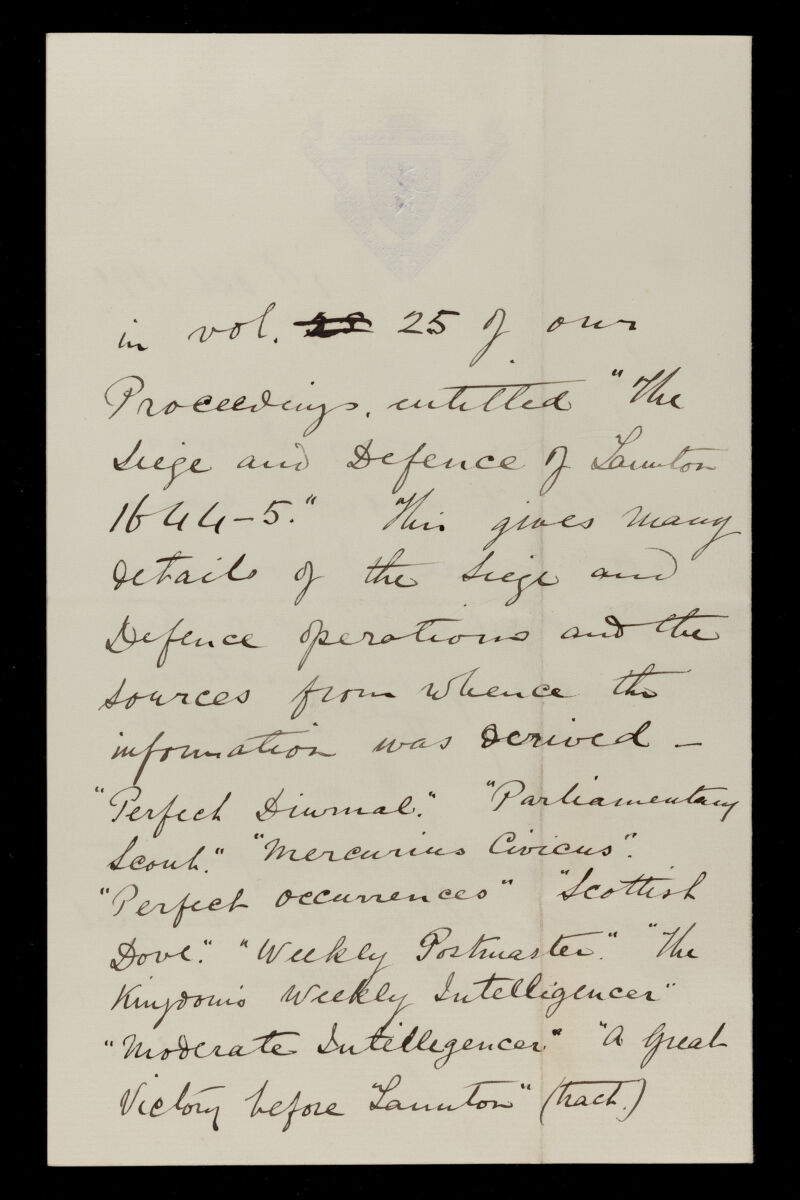 in vol. 25 of our
Proceedings, entitled "The
Siege and Defence of Taunton
1644-5." This gives many
details of the Siege and
Defence operations and the
sources from whence the
information was derived —
"Perfect Diurnal." "Parliamentary
Scout." "Mercurius Civicus".
"Perfect occurrences" "Scottish
Dove." "Weekly Postmaster." "The
Kingdom's Weekly Intelligencer"
"Moderate Intellegencer" "A Great
Victory before Taunton" (tract.)